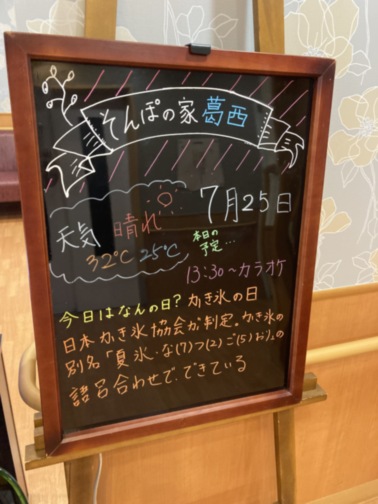 そんぽの家 葛西
7月25日
天気 晴れ
32℃ 25℃
本日の
予定...
13:30〜カラオケ
今日はなんの日? かき氷の日
日本かき氷協会が制定。かき氷の
別名「夏氷・な(7)つ(2)ご(5)おり」の
語呂合わせで、できている